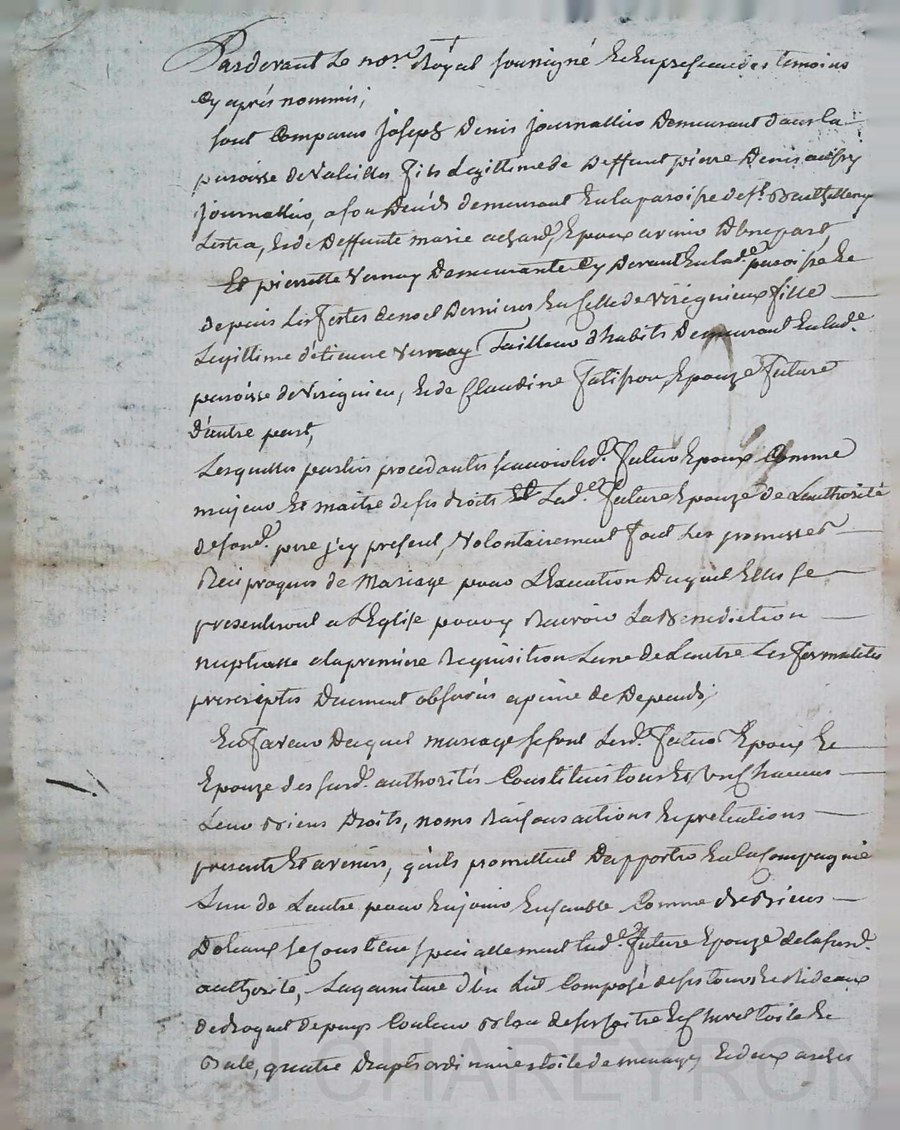 Pardevant Le no.re Royal soussigné Et En presence des temoins
Cy aprés nommés;
sont Comparus joseph Denis journallier Demeurant dans la
paroisse de Valeilles fils Legittime de Deffunt pierre Denis aussy
journallier, a son Deceds demeurant En la paroisse de st. Barthellemy
Lestra, Et de Deffunte marie achard, Epoux avenir D'une part
Et pierrette Vernay Demeurante Cy Devant En lad.e paroisse Et
depuis Les festes de noel Dernieres En Celle de Virigneux fille
Legittime d'étienne Vernay Tailleur d'habits Demeurant En lad.e
paroisse de Virigneu, Et de Claudine fatisson, Epouze future
D'autre part,
Lesquelles parties procedantes scavoir led.t futur Epoux Comme
majeur Et maitre de ses droits Et Lad.e future Epouze de L'authorité
de son d. pere j'cy present, Volontairement font Les promesses
Reciproques de Mariage pour L'Execution Duquel Elles se
presenteront a L'Eglise pour y Recevoir La Benediction
nuptialle a la premiere Requisition Lune de Lautre Les formalités
prescriptes Duement observés a peine de Depends;
En faveur Duquel mariage se sont Lesd. futur Epoux Et
Epouze des susd. authorités Constitués tous Et Un Chacuns
Leur Biens Droits, noms Raisons actions Et pretentions
presents Et avenirs, qu'ils promettent D'apporter En la Compagnie
Lun de Lautre pour En jouir Ensemble Comme de Biens
Dotaux se Constitue specialement lad.e future Epouze de la susd.
authorité, La garniture d'un Lit Composé de ses tours Et Rideaux
de droguet de pays Couleur Bleu de
Bale, quatre Draps ordinaires toile de menage, Et deux arches
CHAREYRON